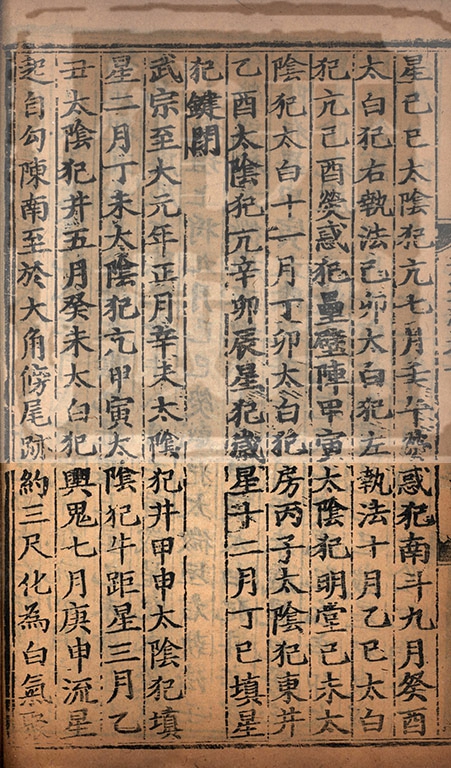 星己巳太陰犯亢七月壬午熒惑犯南斗九月癸酉
太白犯右執法己卯太白犯左執法十月乙巳太白
犯亢己酉熒惑犯壘壁陣甲寅太陰犯明堂己未太
陰犯太白十一月丁卯太白犯房丙子太陰犯東井
乙酉太陰犯亢辛卯辰星犯歲星十二月丁巳填星
犯鍵閉
武宗至大元年正月辛未太陰犯井甲申太陰犯填
星二月丁未太陰犯亢甲寅太陰犯牛距星三月乙
丑太陰犯井五月癸未太白犯輿鬼七月庚申流星
起自勾陳南至於大角傍尾跡約三尺化為白氣聚